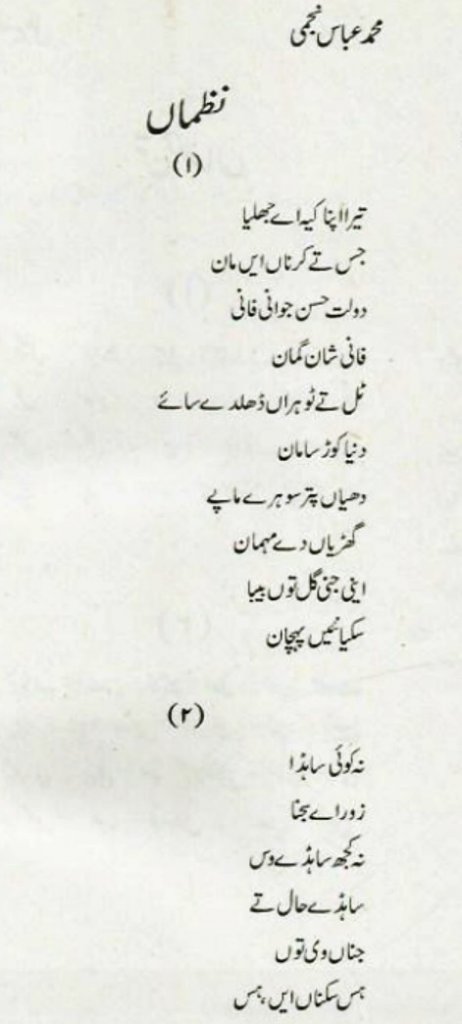 محمد عباس نجمی
نظماں
(۱)
تیرا اپنا کیہ اے جھلیا
جس تے کرناں ایں مان
دولت حسن جوانی فانی
فانی شان گمان
ٹل تے ٹوہراں ڈھلدے سائے
دنیا کوڑ سامان
دھیاں پتر سوہرے ماپے
گھڑیاں دے مہمان
اینی جنی گل توں بیبا
سکیا نئیں پہچان
(۲)
نہ کوئی ساہڈا
زور اے سجنا
نہ کجھ ساہڈے وس
ساہڈے حال تے
جناں وی توں
ہس سکناں ایں، ہس